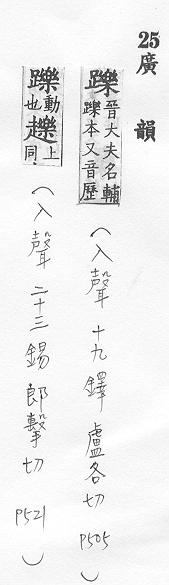 25廣韻
躒晉大夫名輔
躒本又音歷
(入聲 十九鐸 盧各切 P505)
躒動
也趮上
同.
(入聲 二十三錫 郎擊切 P521)